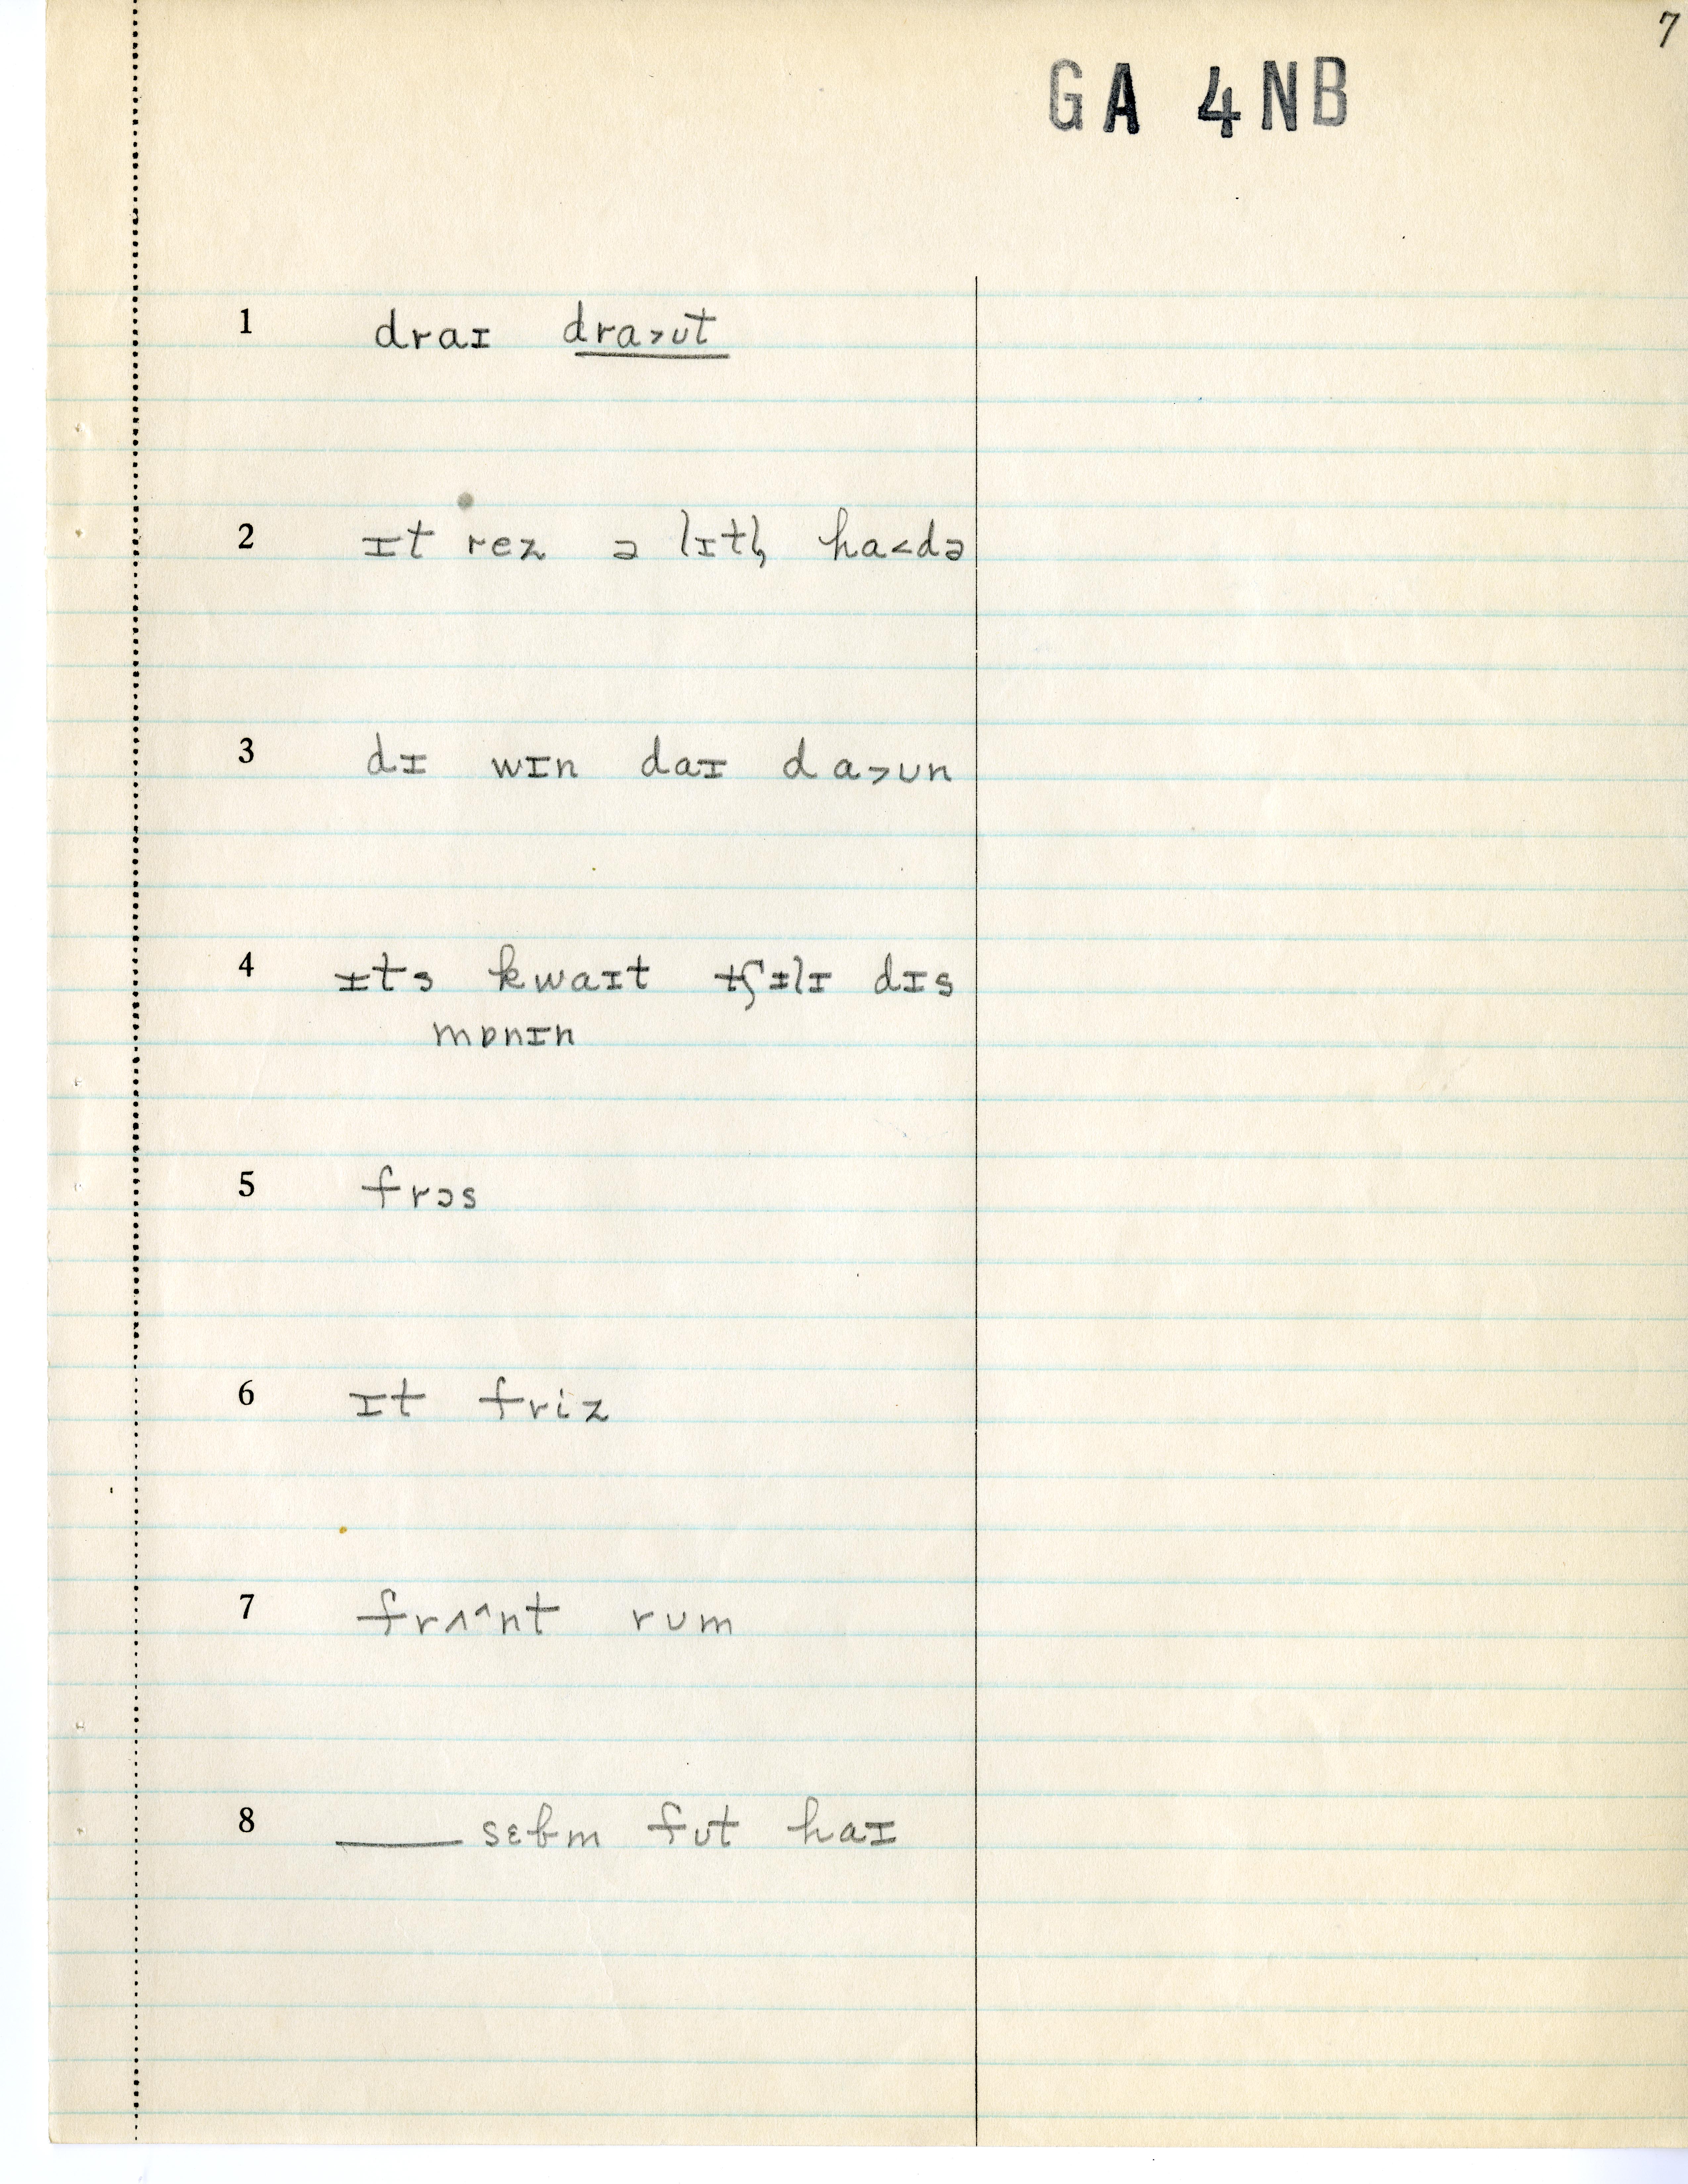 7
GA 4NB
1 draɪ dra˃ʊt
2 ɪt rez ə lɪtl̩ ha˂də
3 dɪ wɪn daɪ da˃ʊn
4 ɪts kwaɪt tʃɪlɪ dɪs
mɒnɪn
5 frɔs
6 ɪt friz
7 frʌ^nt rum
8 ____ sɛbm fʊt haɪ